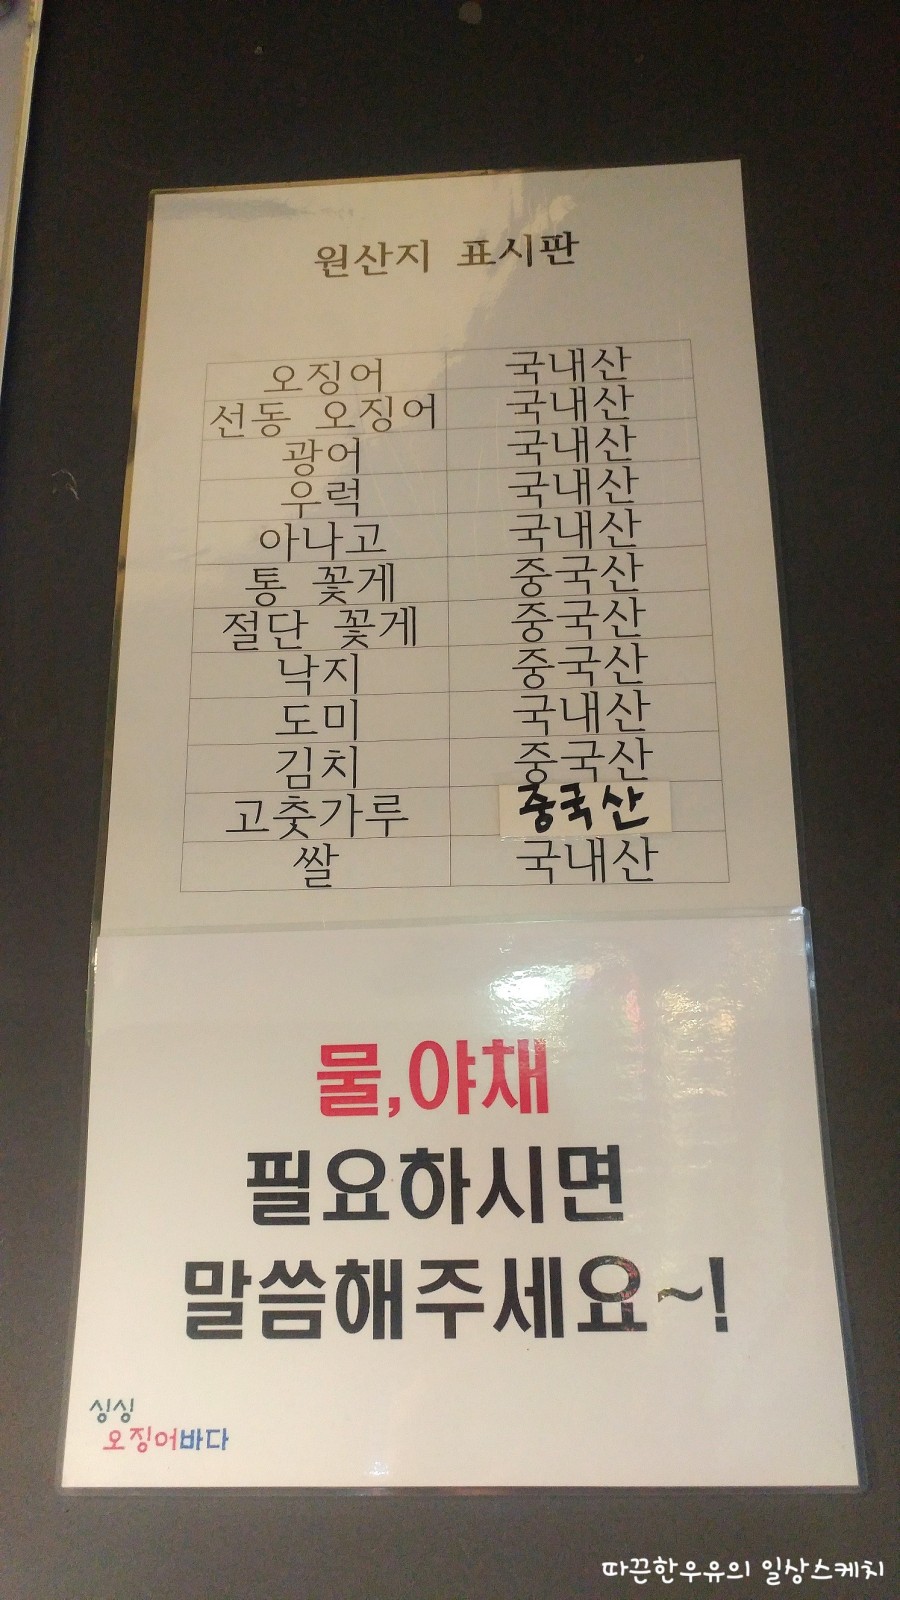 원산지 표시판
오징어 국내산
선동 오징어 국내산
광어 국내산
우럭 국내산
아나고 국내산
통 꽃게 중국산
절단 꽃게 중국산
낙지 중국산
도미 국내산
김치 중국산
고춧가루 중국산
쌀 국내산
물,야채
필요하시면
말씀해주세요~!
싱싱
오징어바다
따끈한우유의 일상스케치